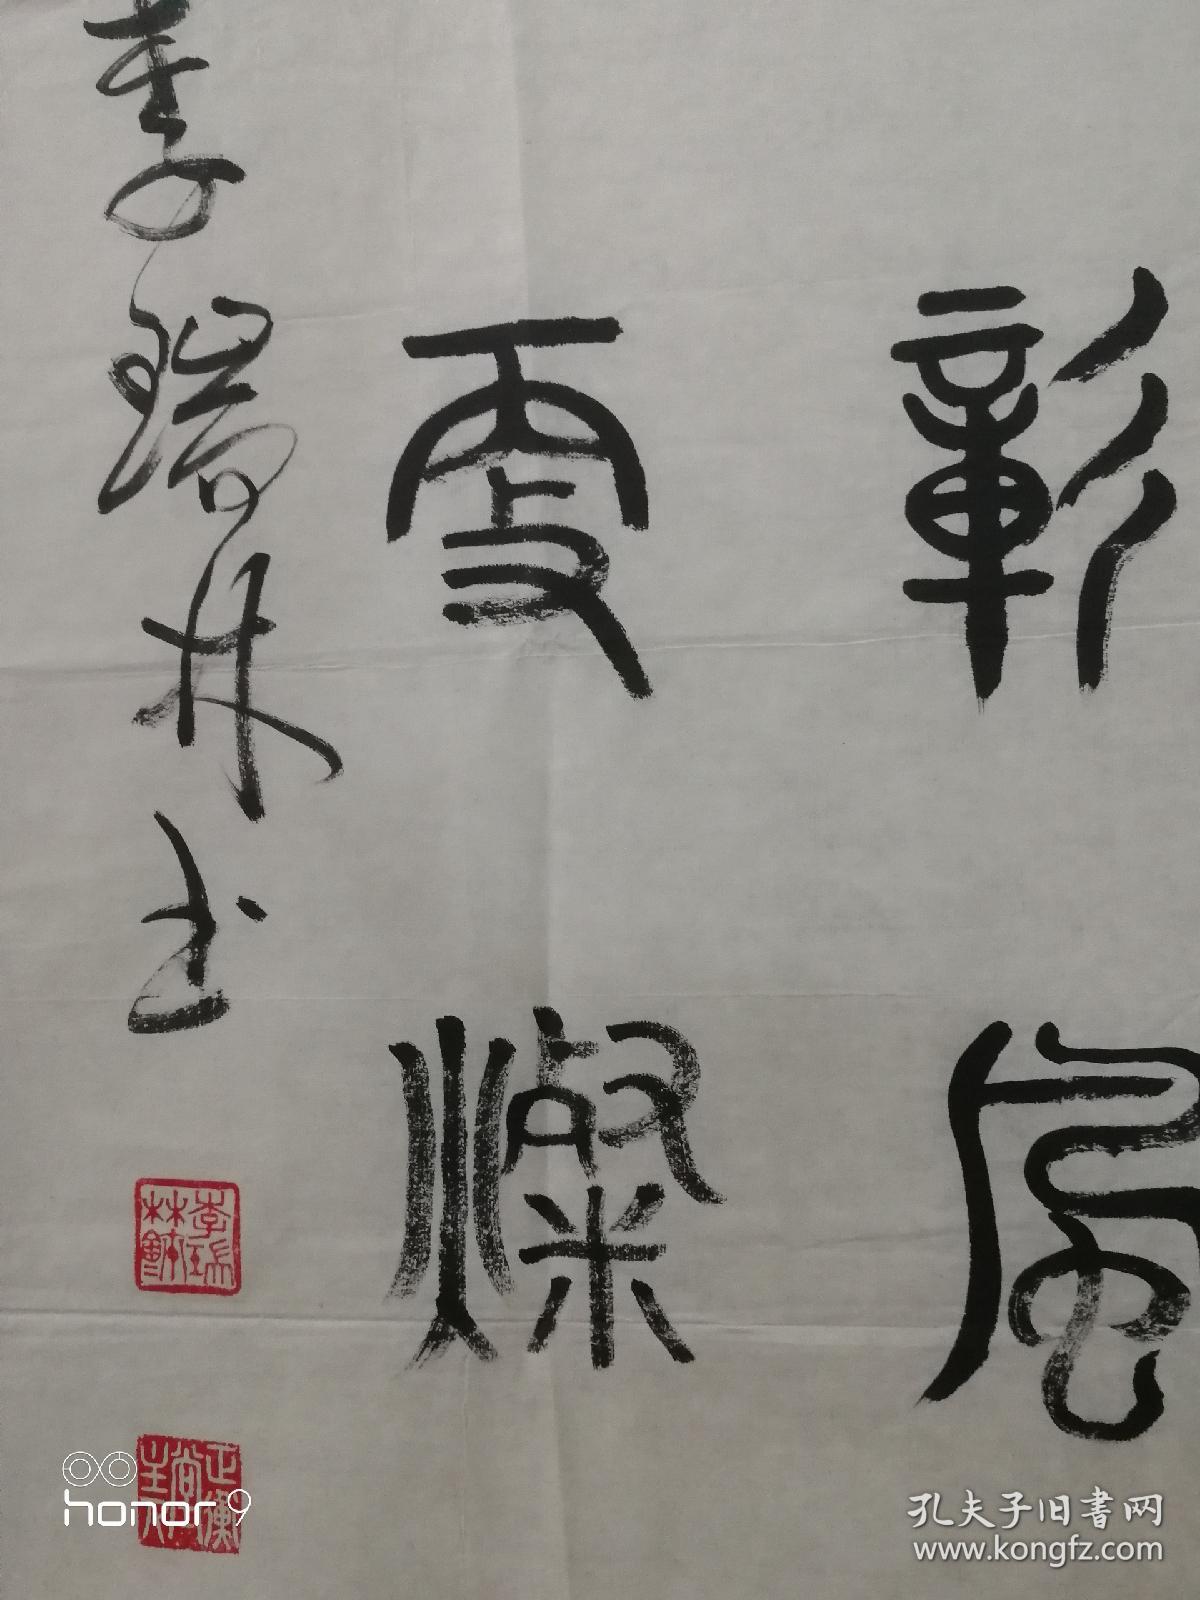 彰風
霞燦
李瑞林书
李瑞林鉨
正衡堂主人
honor 9
孔夫子旧书网
www.kongfz.com